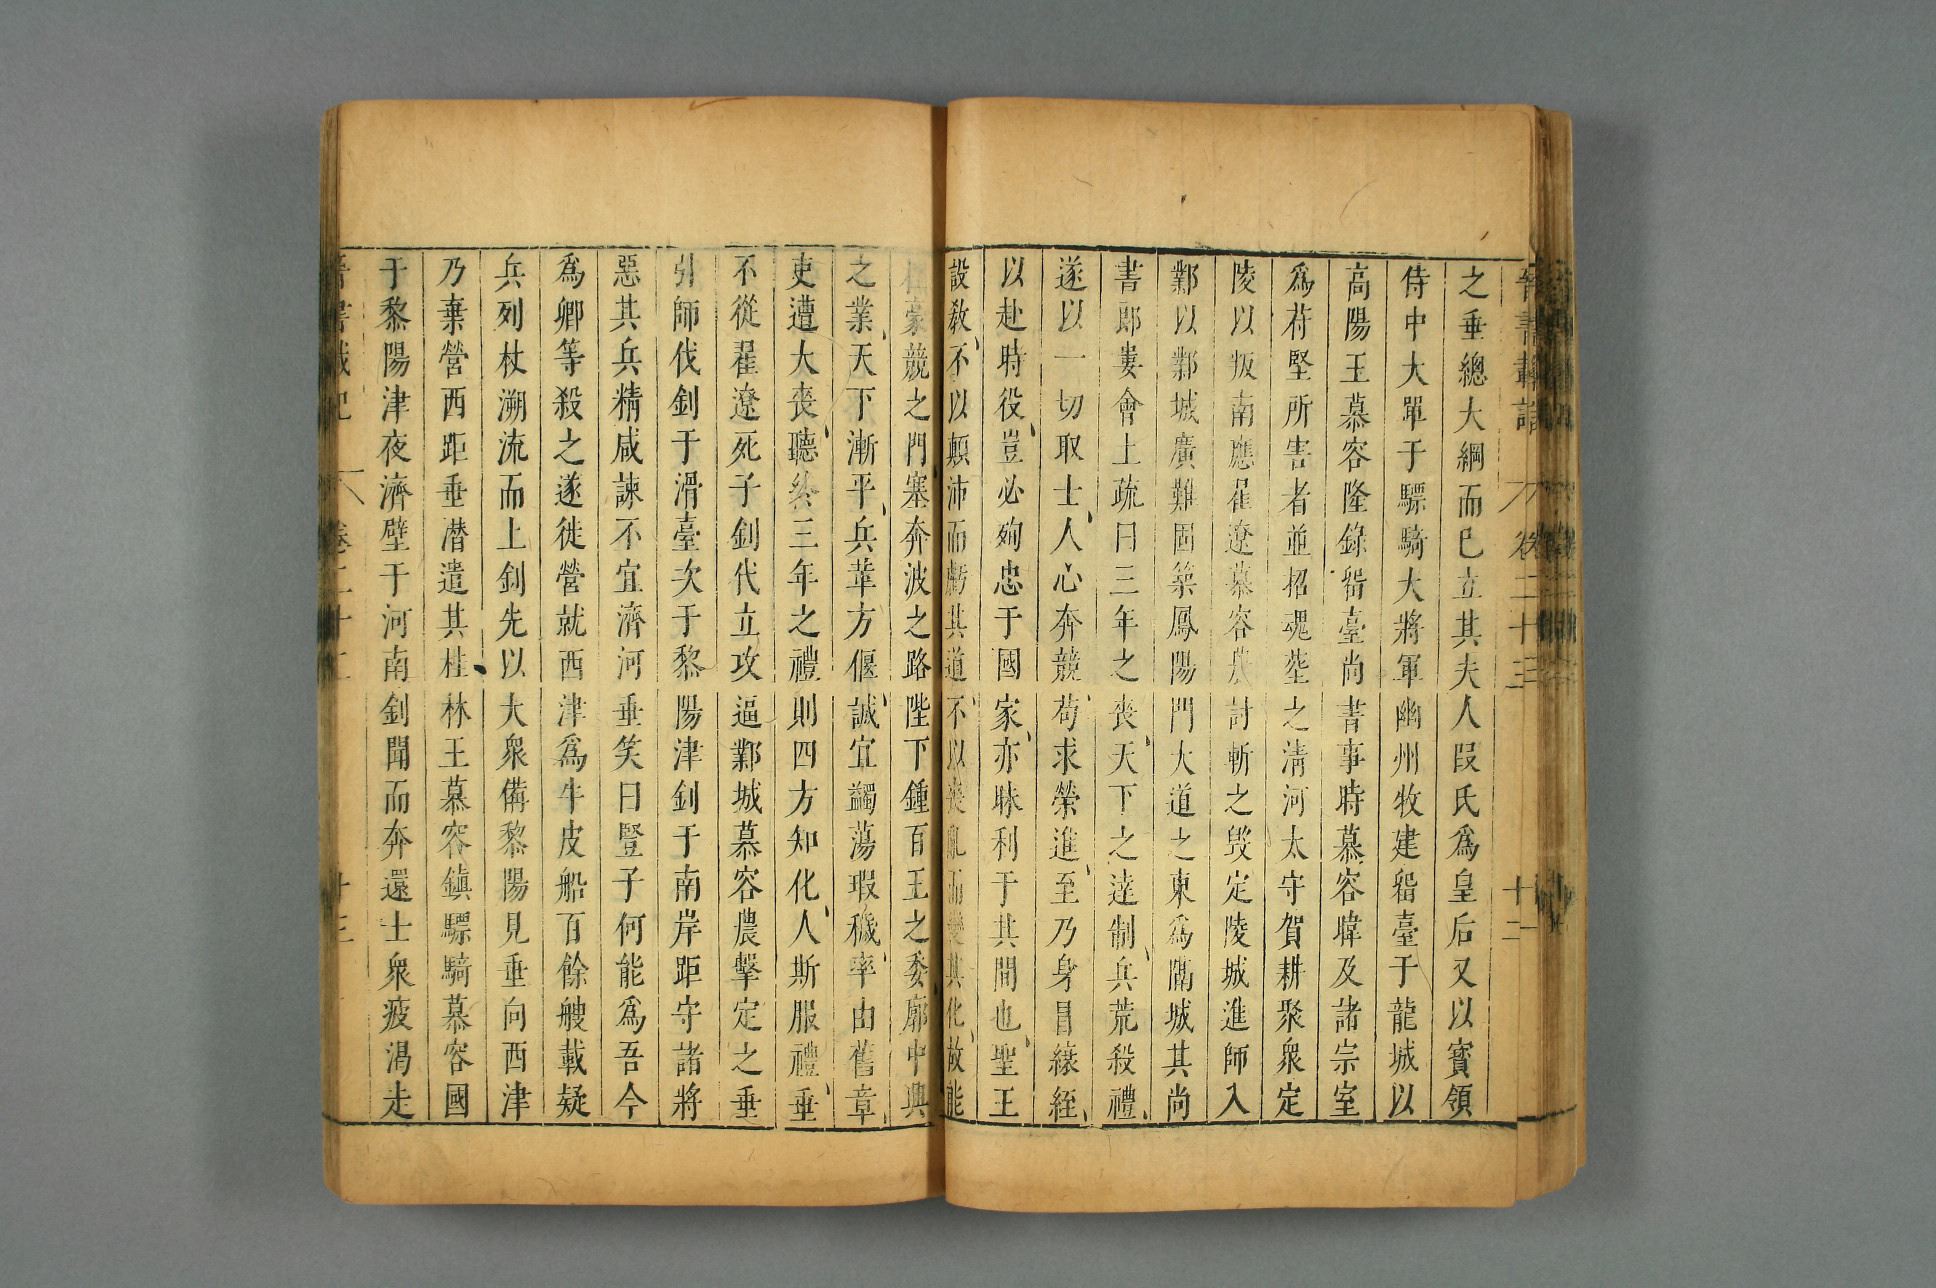 晉書載記 卷二十三 十二
之垂總大綱而已立其夫人段氏爲皇后又以寳領
侍中大單于驃騎大將軍幽州牧建留臺于龍城以
高陽王慕容隆錄留臺尚書事時慕容暐及諸宗室
爲苻堅所害者並招魂塟之淸河太守賀耕聚衆定
陵以叛南應翟遼慕容農討斬之毁定陵城進師入
鄴以鄴城廣難固築鳳陽門大道之東爲隔城其尚
書郎婁會上疏曰三年之喪天下之逹制兵荒殺禮
遂以一切取士人心奔競苟求榮進至乃身冒縗絰
以赴時役豈必殉忠于國家亦昧利于其間也聖王
設敎不以顛沛而虧其道不以喪亂而變其化故能
杜豪競之門塞奔波之路陛下鍾百王之季廓中興
之業天下漸平兵革方偃誠宜蠲蕩瑕穢率由舊章
吏遭大喪聽終三年之禮則四方知化人斯服禮垂
不從翟遼死子釗代立攻逼鄴城慕容農擊定之垂
引師伐釗于滑臺次于黎陽津釗于南岸距守諸將
惡其兵精咸諫不宜濟河垂笑曰豎子何能爲吾今
爲卿等殺之遂徙營就西津爲牛皮船百餘艘載疑
兵列杖溯流而上釗先以大衆備黎陽見垂向西津
乃棄營西距垂潛遣其桂林王慕容鎮驃騎慕容國
于黎陽津夜濟壁于河南釗聞而奔還士衆疲渴走
晉書載記 卷二十三 十三